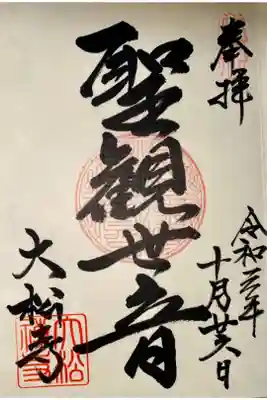 奉拝
令和元年
十月廿六日
聖観世音
大松寺